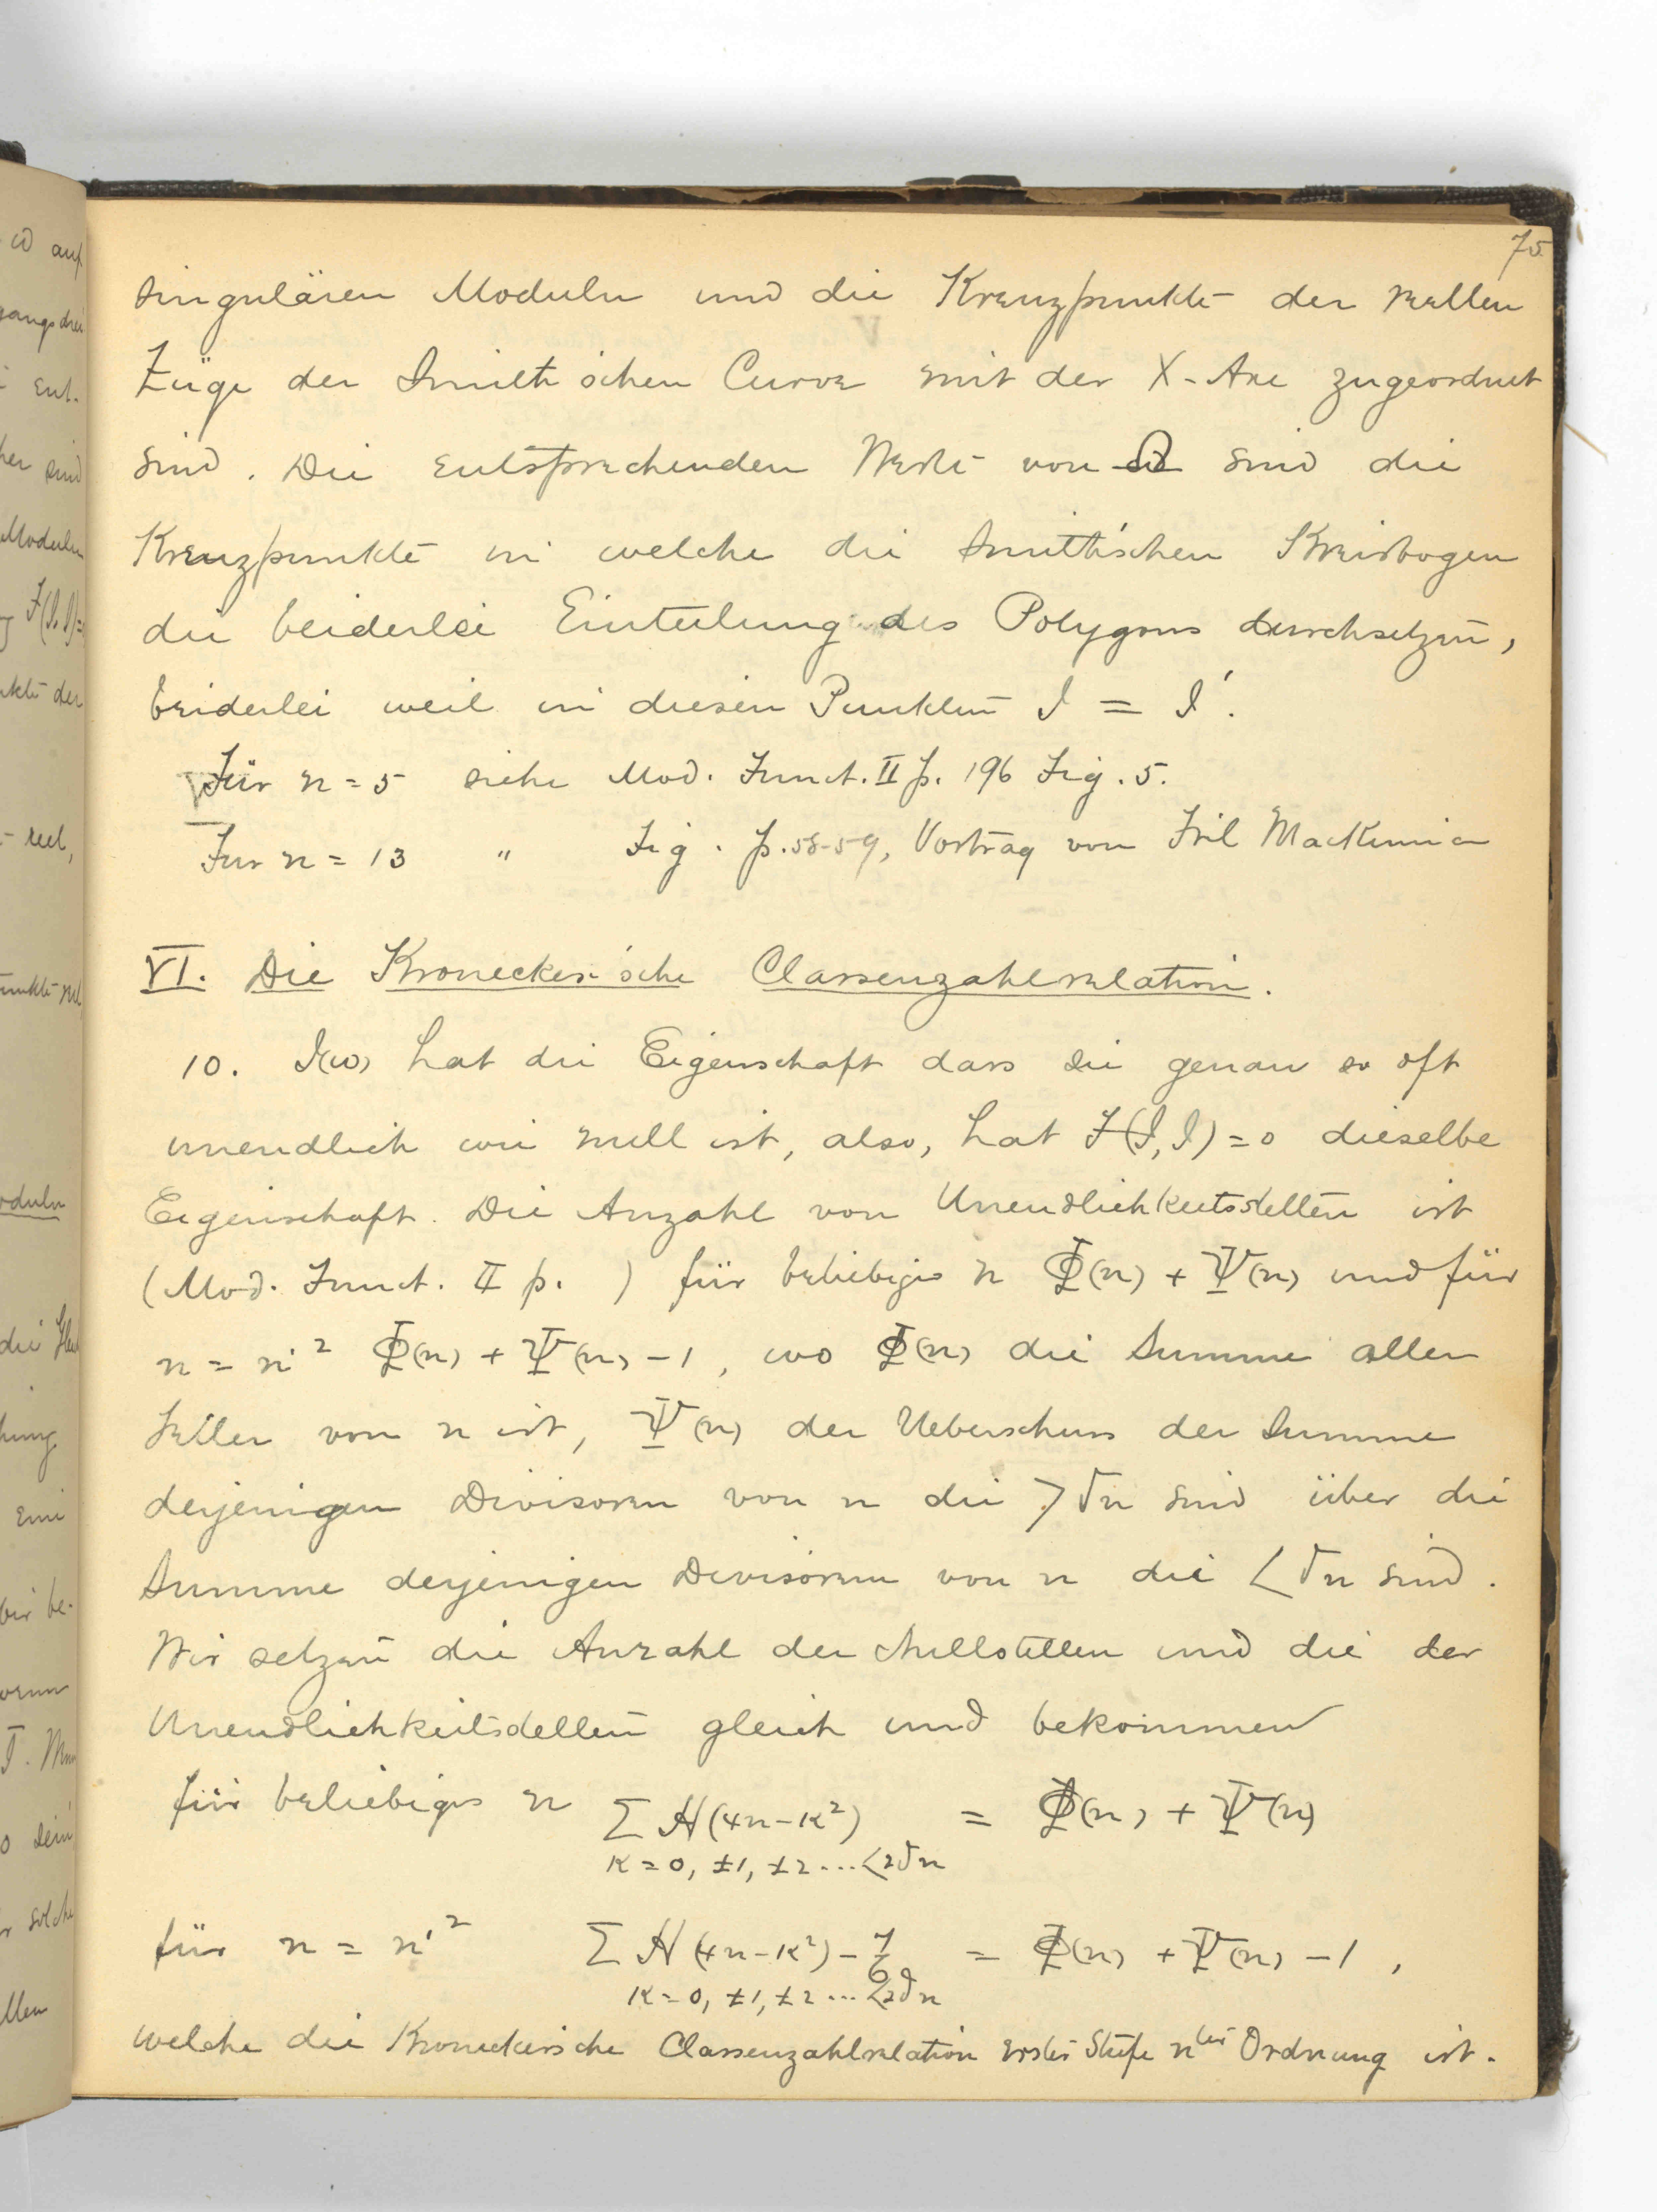 75
singulären Moduln und die Kreuzpunkte der reellen
Züge der Smith'schen Curve mit der X-Axe zugeordnet
sind. Die entsprechenden Werte von ω sind die
Kreuzpunkte in welche die Smith'schen Kreisbogen
die beiderlei Einteilung des Polygons durchsetzen,
beiderlei weil in diesen Punkten J = J'.
Für n = 5 siehe Mod. Funct. II p. 196 Fig. 5.
Für n = 13 " Fig. p. 58-59, Vortrag von Frl MacKinnon
VI. Die Kronecker'sche Classenzahlrelation.
10. J(ω) hat die Eigenschaft dass sie genau so oft
unendlich wie null ist, also, hat F(J, J) = 0 dieselbe
Eigenschaft. Die Anzahl von Unendlichkeitsstellen ist
(Mod. Funct. II p. ) für beliebiges n Φ(n) + Ψ(n) und für
n = n'² Φ(n) + Ψ(n) - 1, wo Φ(n) die Summe aller
Teiler von n ist, Ψ(n) der Ueberschuss der Summe
derjenigen Divisoren von n die > √n sind über die
Summe derjenigen Divisoren von n die < √n sind.
Wir setzen die Anzahl der Nullstellen und die der
Unendlichkeitsstellen gleich und bekommen
für beliebiges n Σ H(4n - κ²) = Φ(n) + Ψ(n)
κ = 0, ±1, ±2 ... < 2√n
für n = n'² Σ H(4n - κ²) - 7/6 = Φ(n) + Ψ(n) - 1,
κ = 0, ±1, ±2 ... < 2√n
welche die Kronecker'sche Classenzahlrelation erster Stufe nter Ordnung ist.